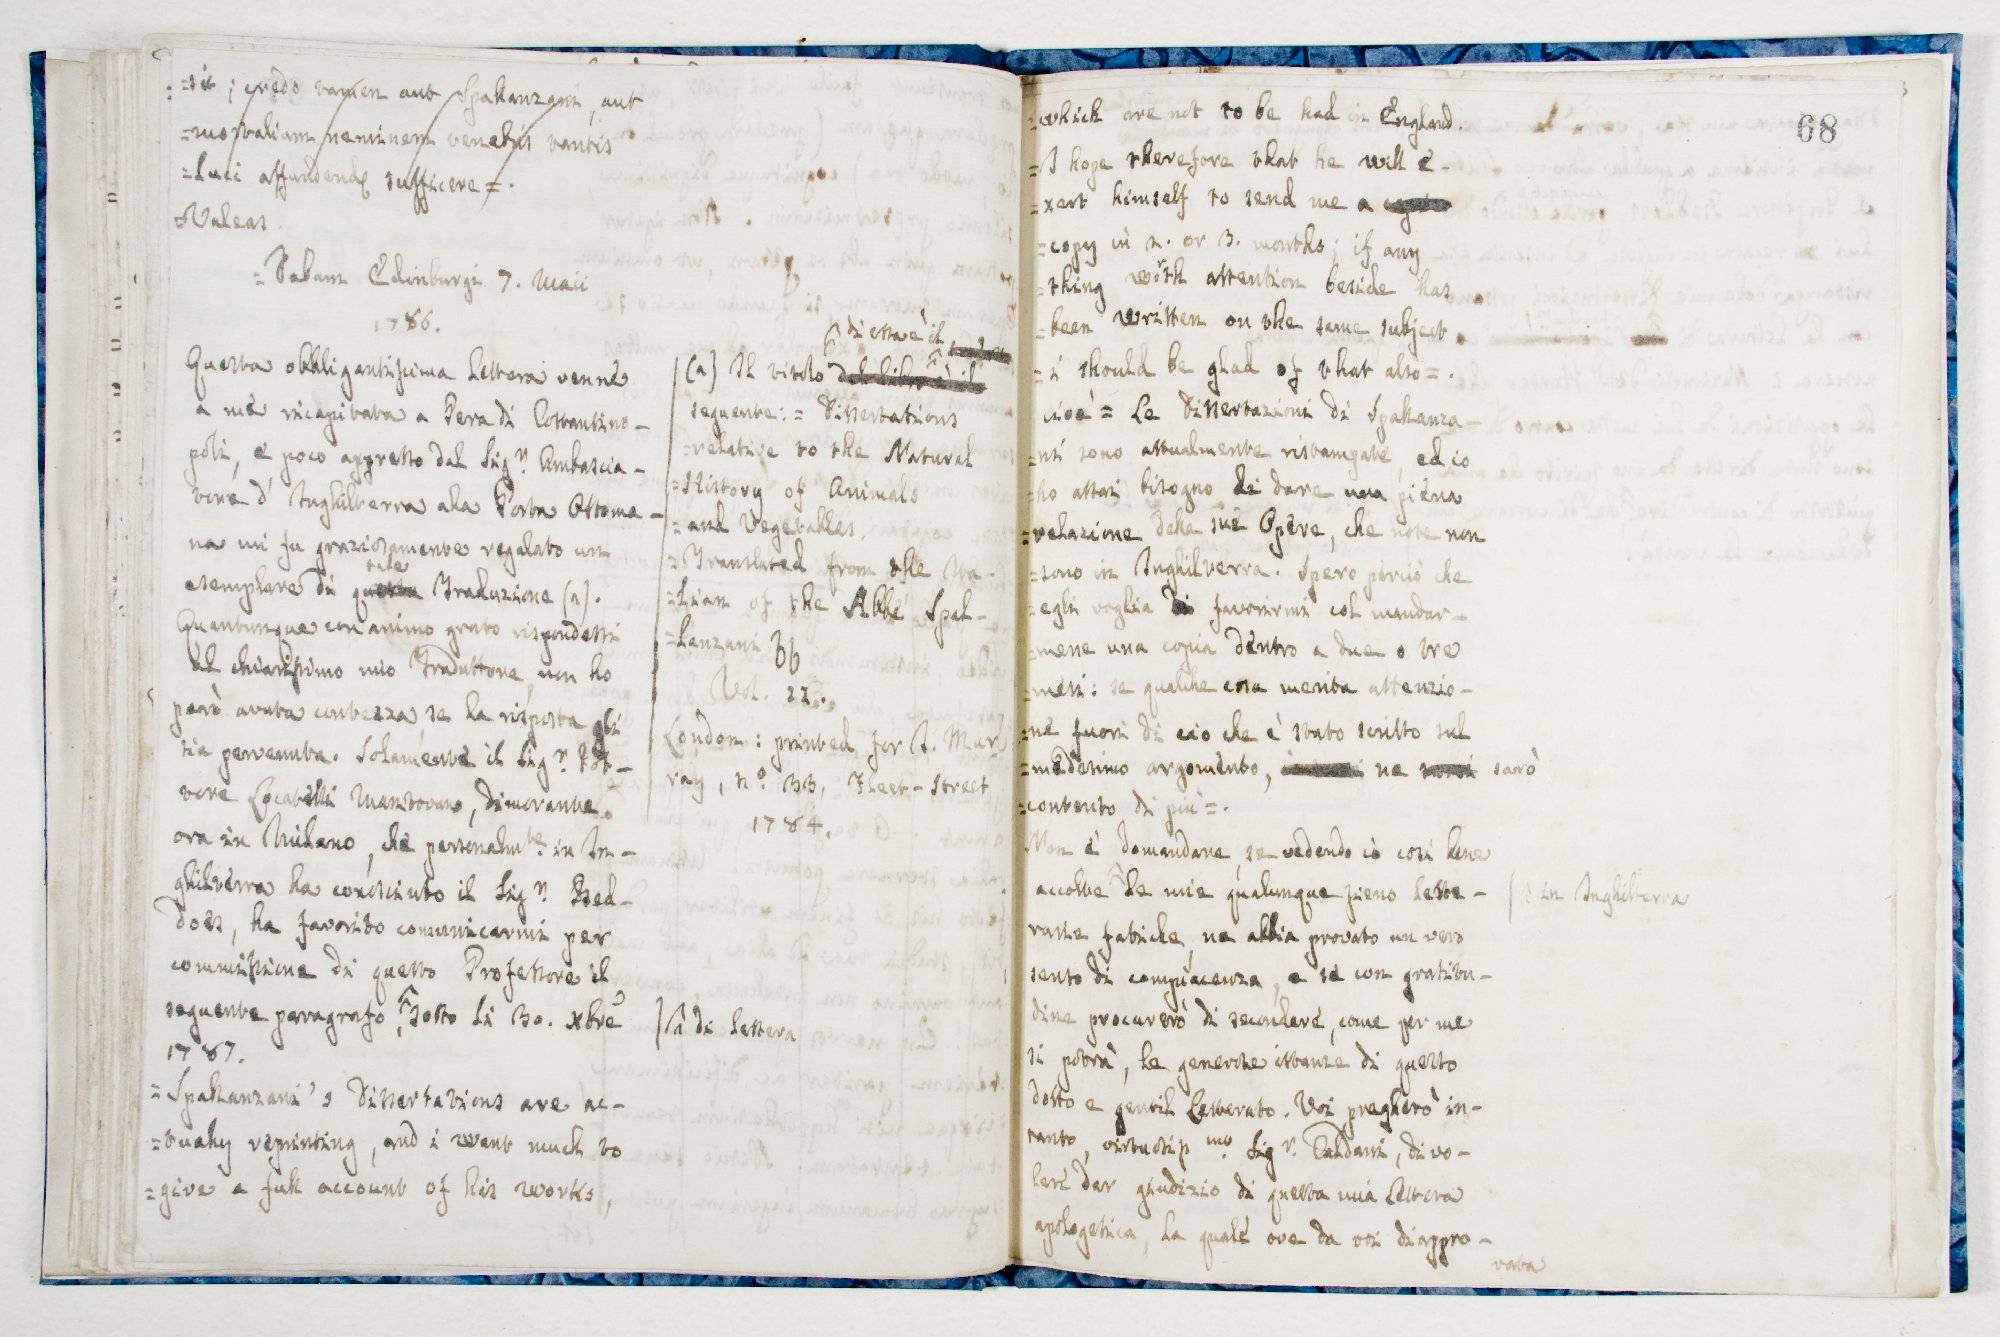 =sit; credo tamen aut Spallanzani, aut
=mortalium neminem venetis tantis
=luci affundendę sufficere=.
=Valeas.
=Dabam Edinburgi 7. Maii
1786.
Questa obbligantissima Lettera venne
a me ricapitata a Pera di Costantino-
poli, e poco appresso dal Sig.r Ambascia-
tore d' Inghilterra alla Porta Ottoma-
na mi fu graziosamente regalato un
tale
esemplare di questa Traduzione (a).
Quantunque con animo grato rispondessi
al chiarissimo mio Traduttore, non ho
però avuta contezza se la risposta gli
sia pervenuta. Solamente il Sig.r Dot-
tore Locatelli Mantovano, dimorante
ora in Milano, che personalm.te in In-
ghilterra ha conosciuto il Sig.r Bed-
does, ha favorito comunicarmi per
commissione di questo Professore il
seguente paragrafo, sotto li 30. xbre
1787.
=Spallanzani's Dissertations are ac-
=tually reprinting, and i want much to
=give a full account of his works,
di essa è il
(a) Il titolo del libro è il
seguente: = Dissertations
=relative to the Natural
=History of Animals
=and Vegetables.
=Translated from the Ita-
=lian of the Abbé Spal-
=lanzani
Vol. 22.
London: printed for J. Mur-
ray, n.º 33, Fleet-Street,
1784.
di lettera
68
=which are not to be had in England.
=I hope therefore that he will e-
=xert himself to send me a
=copy in 2. or 3. months; if any
=thing worth attention beside has
=been written on the same subject
=i should be glad of that also=.
cioè = Le Dissertazioni di Spallanza-
=ni sono attualmente ristampate, ed io
=ho assai bisogno di dare una piena
=relazione delle sue Opere, che note non
=sono in Inghilterra. Spero perciò che
=egli voglia favorirmi col mandar-
=mene una copia dentro a due o tre
=mesi: se qualche cosa merita attenzio-
=ne fuori di ciò che è stato scritto sul
=medesimo argomento, ne sarò
=contento di più=.
Non è domandare se vedendo io così bene
accolte le mie qualunque sieno lette-
in Inghilterra
rarie fatiche, ne abbia provato un vero
senso di compiacenza, e se con gratitu-
dine procurerò di secondare, come per me
si potrà, le generose istanze di questo
dotto e gentil Letterato. Voi pregherò in-
tanto, virtuosiss.mo Sig.r Caldani, di vo-
ler dar giudizio di questa mia Lettera
apologetica, la quale ove da voi disappro-
vata